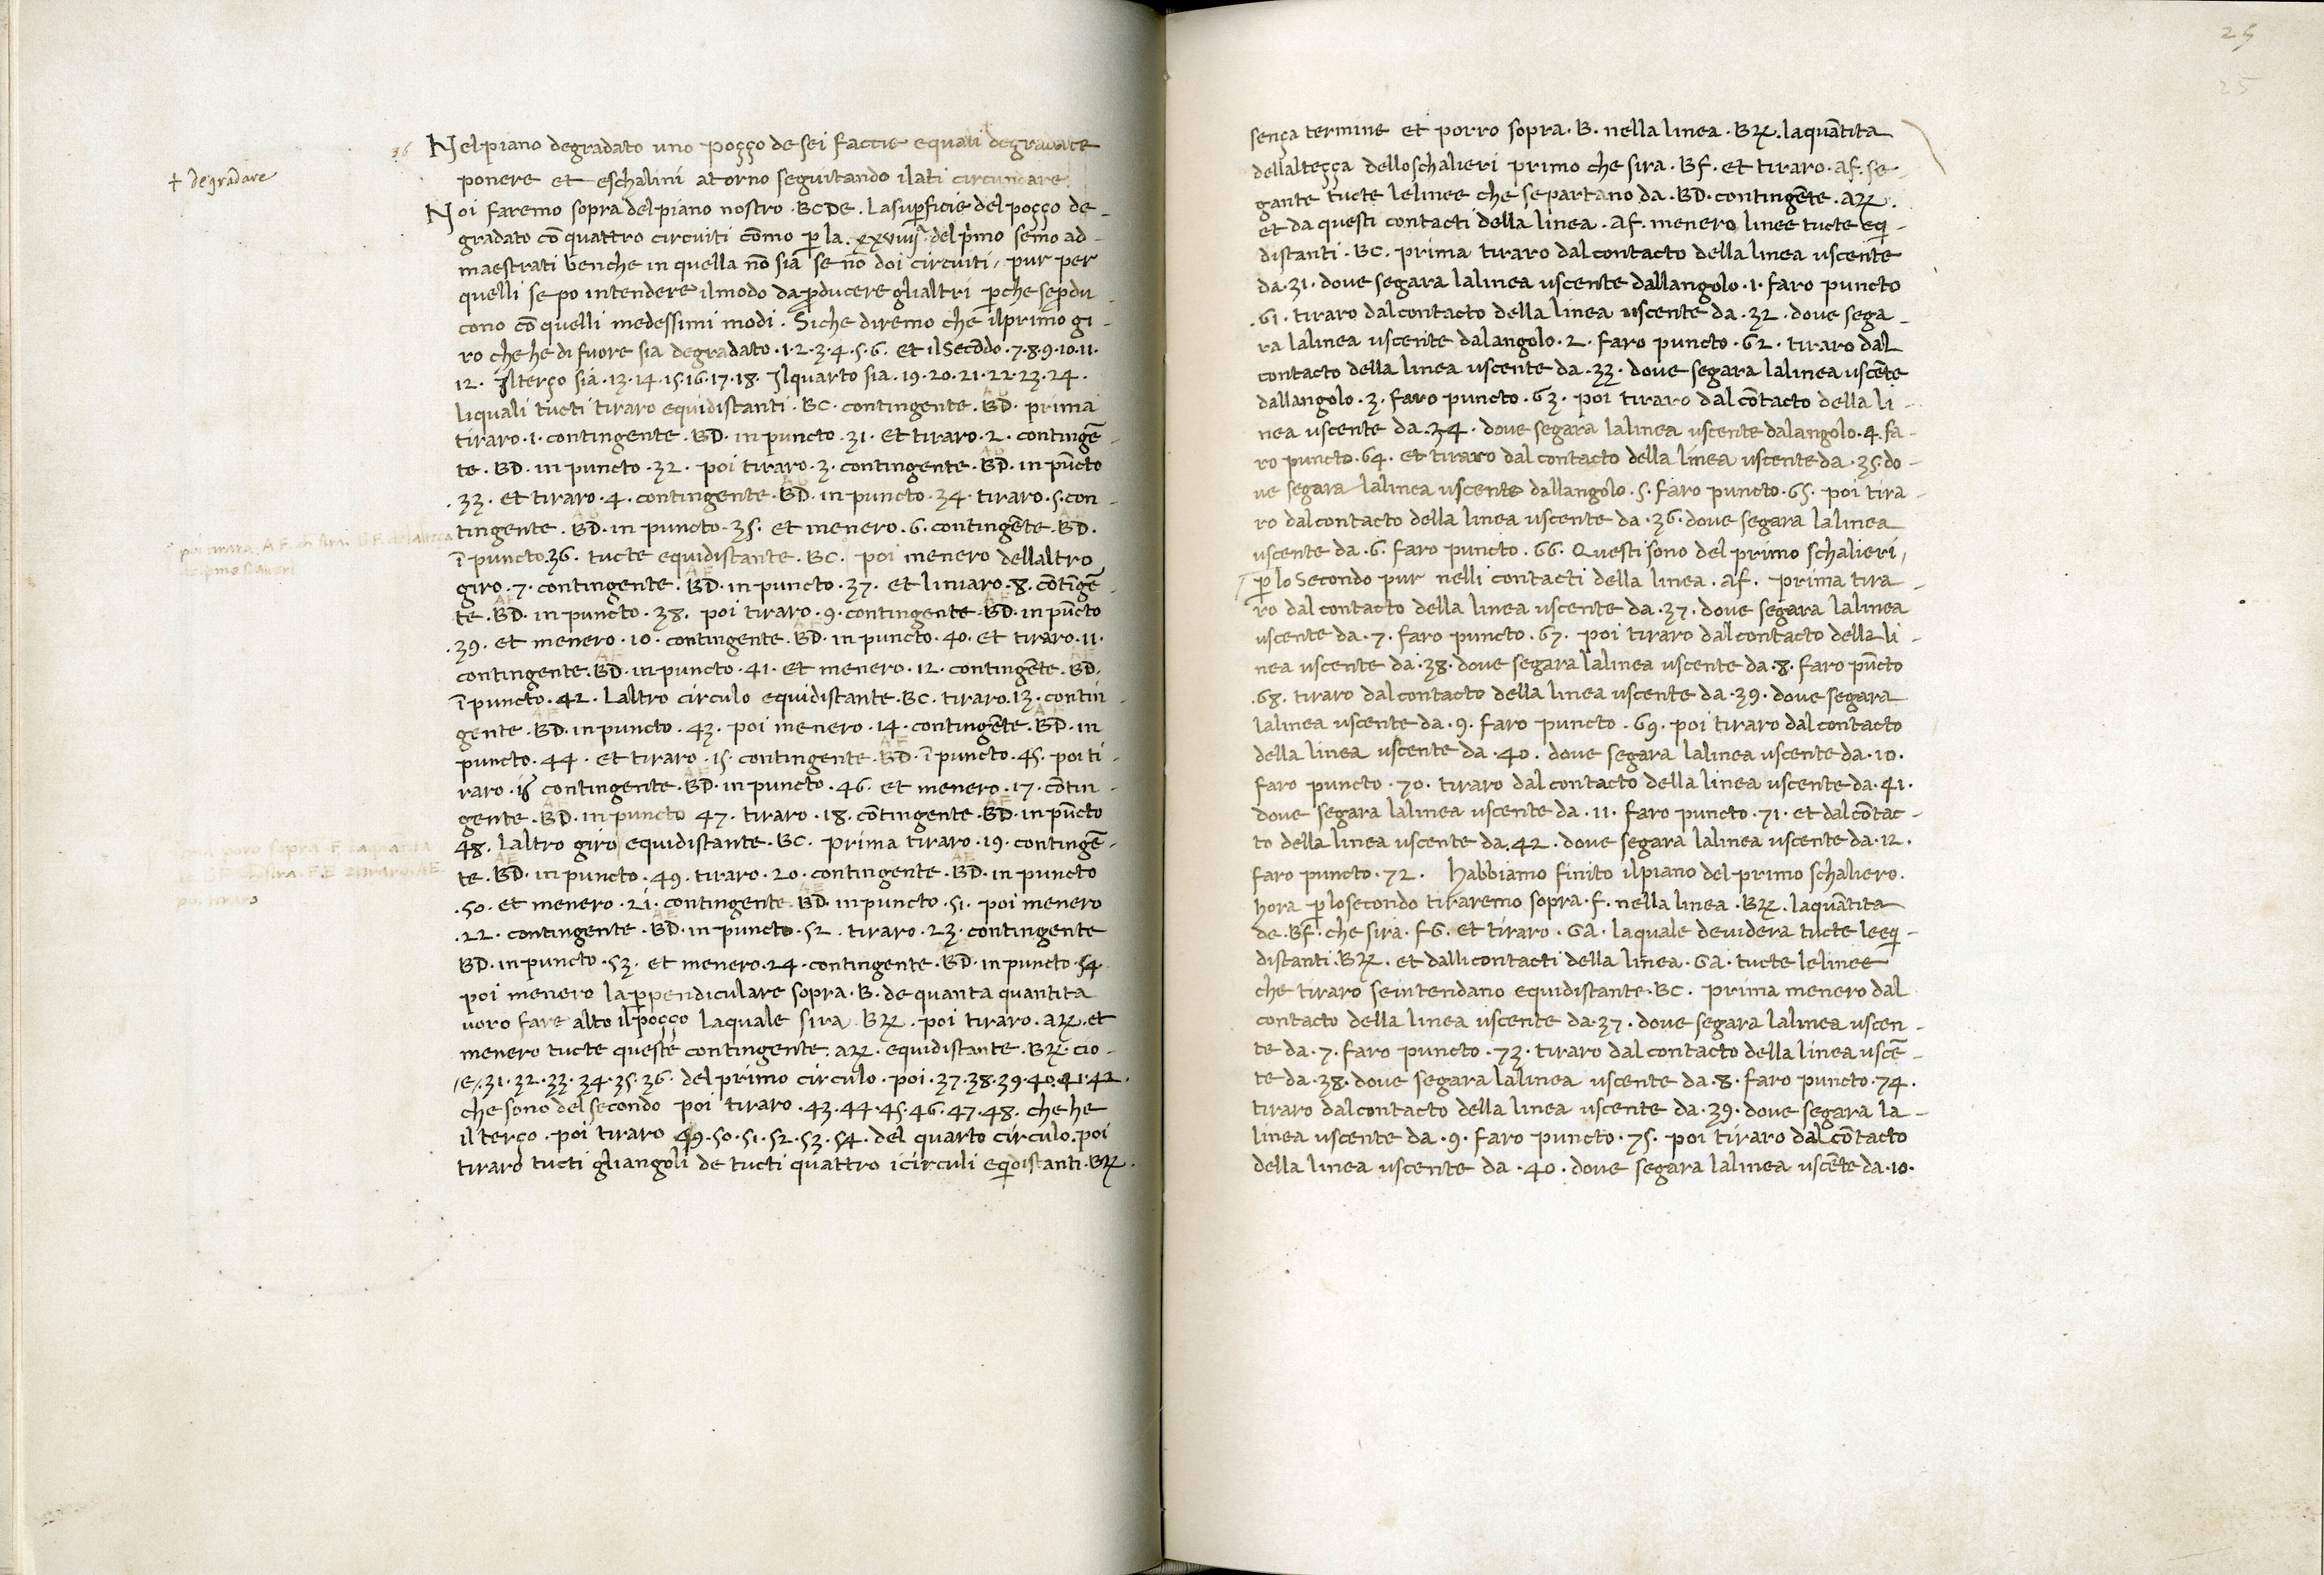 36 Nel piano degradato uno poçço de sei faccie equali degradate
+ degradare
ponere et eschalini atorno seguitando ilati circundare
Noi faremo sopra del piano nostro .BCDE. La sup̱ficie del poçço de-
gradato cō quattro circuiti cōmo p̱ la .xxviiij.ª del p̱rimo semo ad-
maestrati benche in quella nō siā se nō doi circuiti, pur per
quelli se po intendere ilmodo da p̱ducere glialtri p̱che sep̱du-
cono cō quelli medessimi modi. Siche diremo che ilprimo gi-
ro che he di fuore sia degradato .1.2.3.4.5.6. et il Secōdo .7.8.9.10.11.
12. Ilterço sia .13.14.15.16.17.18. Ilquarto sia .19.20.21.22.23.24.
liquali tucti tiraro equidistanti .BC. contingente .BD. prima
tiraro .1. contingente .BD. in puncto .31. et tiraro .2. contingē-
te .BD. in puncto .32. poi tiraro .3. contingente .BD. in pūcto
.33. et tiraro .4. contingente .BD. in puncto .34. tiraro .5. con-
tingente .BD. in puncto .35. et menero .6. contingēte .BD.
ī puncto .36. tucte equidistante .BC. poi menero dellaltro
giro .7. contingente .BD. in puncto .37. et liniaro .8. cōtīgē-
te .BD. in puncto .38. poi tiraro .9. contingente .BD. in pūcto
.39. et menero .10. contingente .BD. in puncto .40. et tiraro .11.
contingente .BD. in puncto .41. et menero .12. contingēte .BD.
ī puncto .42. Laltro circulo equidistante .BC. tiraro .13. contin-
gente .BD. in puncto .43. poi menero .14. contingēte .BD. in
puncto .44. et tiraro .15. contingente .BD. ī puncto .45. poi ti-
raro .16. contingente .BD. in puncto .46. et menero .17. cōtin-
gente .BD. in puncto 47. tiraro .18. cōtingente .BD. in pūcto
48. Laltro giro equidistante .BC. prima tiraro .19. contingē-
te .BD. in puncto .49. tiraro .20. contingente .BD. in puncto
.50. et menero .21. contingente .BD. in puncto .51. poi menero
.22. contingente .BD. in puncto .52. tiraro .23. contingente
BD. in puncto .53. et menero .24. contingente .BD. in puncto .54.
poi menero la p̱pendiculare sopra .B. de quanta quantita
voro fare alto il poçço laquale sira .BZ. poi tiraro .AZ. et
menero tucte queste contingente .AZ. equidistante .BZ. cio-
/e/ .31.32.33.34.35.36. del primo circulo. poi .37.38.39.40.41.42.
che sono del secondo poi tiraro .43.44.45.46.47.48. che he
il terço. poi tiraro 49.50.51.52.53.54. del quarto circulo. poi
tiraro tucti gliangoli de tucti quattro icirculi eq̱distanti .BZ.
25
25
sença termine et porro sopra .B. nella linea .BZ. laquātita
dellalteçça delloschalieri primo che sira .BF. et tiraro .AF. se-
gante tucte lelinee che separtano da .BD. contingēte .AZ.
et da questi contacti della linea .AF. menero linee tucte eq̱-
distanti .BC. prima tiraro dal contacto della linea uscente
da .31. dove segara lalinea uscente dallangolo .1. faro puncto
.61. tiraro dal contacto della linea uscente da .32. dove sega-
ra lalinea uscente dalangolo .2. faro puncto .62. tiraro dal
contacto della linea uscente da .33. dove segara lalinea uscēte
dallangolo .3. faro puncto .63. poi tiraro dal cōtacto della li-
nea uscente da .34. dove segara lalinea uscente dalangolo .4. fa-
ro puncto .64. et tiraro dal contacto della linea uscente da .35. do-
ve segara lalinea uscente dallangolo .5. faro puncto .65. poi tira-
ro dal contacto della linea uscente da .36. dove segara lalinea
uscente da .6. faro puncto .66. Questi sono del primo schalieri,
p̱ lo Secondo pur nelli contacti della linea .AF. prima tira-
ro dal contacto della linea uscente da .37. dove segara lalinea
uscente da .7. faro puncto .67. poi tiraro dal contacto della li-
nea uscente da .38. dove segara lalinea uscente da .8. faro pūcto
.68. tiraro dal contacto della linea uscente da .39. dove segara
lalinea uscente da .9. faro puncto .69. poi tiraro dal contacto
della linea uscente da .40. dove segara lalinea uscente da .10.
faro puncto .70. tiraro dal contacto della linea uscente da .41.
dove segara lalinea uscente da .11. faro puncto .71. et dal cōtac-
to della linea uscente da .42. dove segara lalinea uscente da .12.
faro puncto .72. Habbiamo finito ilpiano del primo schaliero.
hora p̱ losecondo tiraremo sopra .F. nella linea .BZ. laquātita
de .BF. che sira .FG. et tiraro .GA. laquale devidera tucte leeq̱-
distanti .BZ. et dalli contacti della linea .GA. tucte lelinee
che tiraro seintendano equidistante .BC. prima menero dal
contacto della linea uscente da .37. dove segara lalinea uscen-
te da .7. faro puncto .73. tiraro dal contacto della linea uscē-
te da .38. dove segara lalinea uscente da .8. faro puncto .74.
tiraro dal contacto della linea uscente da .39. dove segara la-
linea uscente da .9. faro puncto .75. poi tiraro dal cōtacto
della linea uscente da .40. dove segara lalinea uscēte da .10.